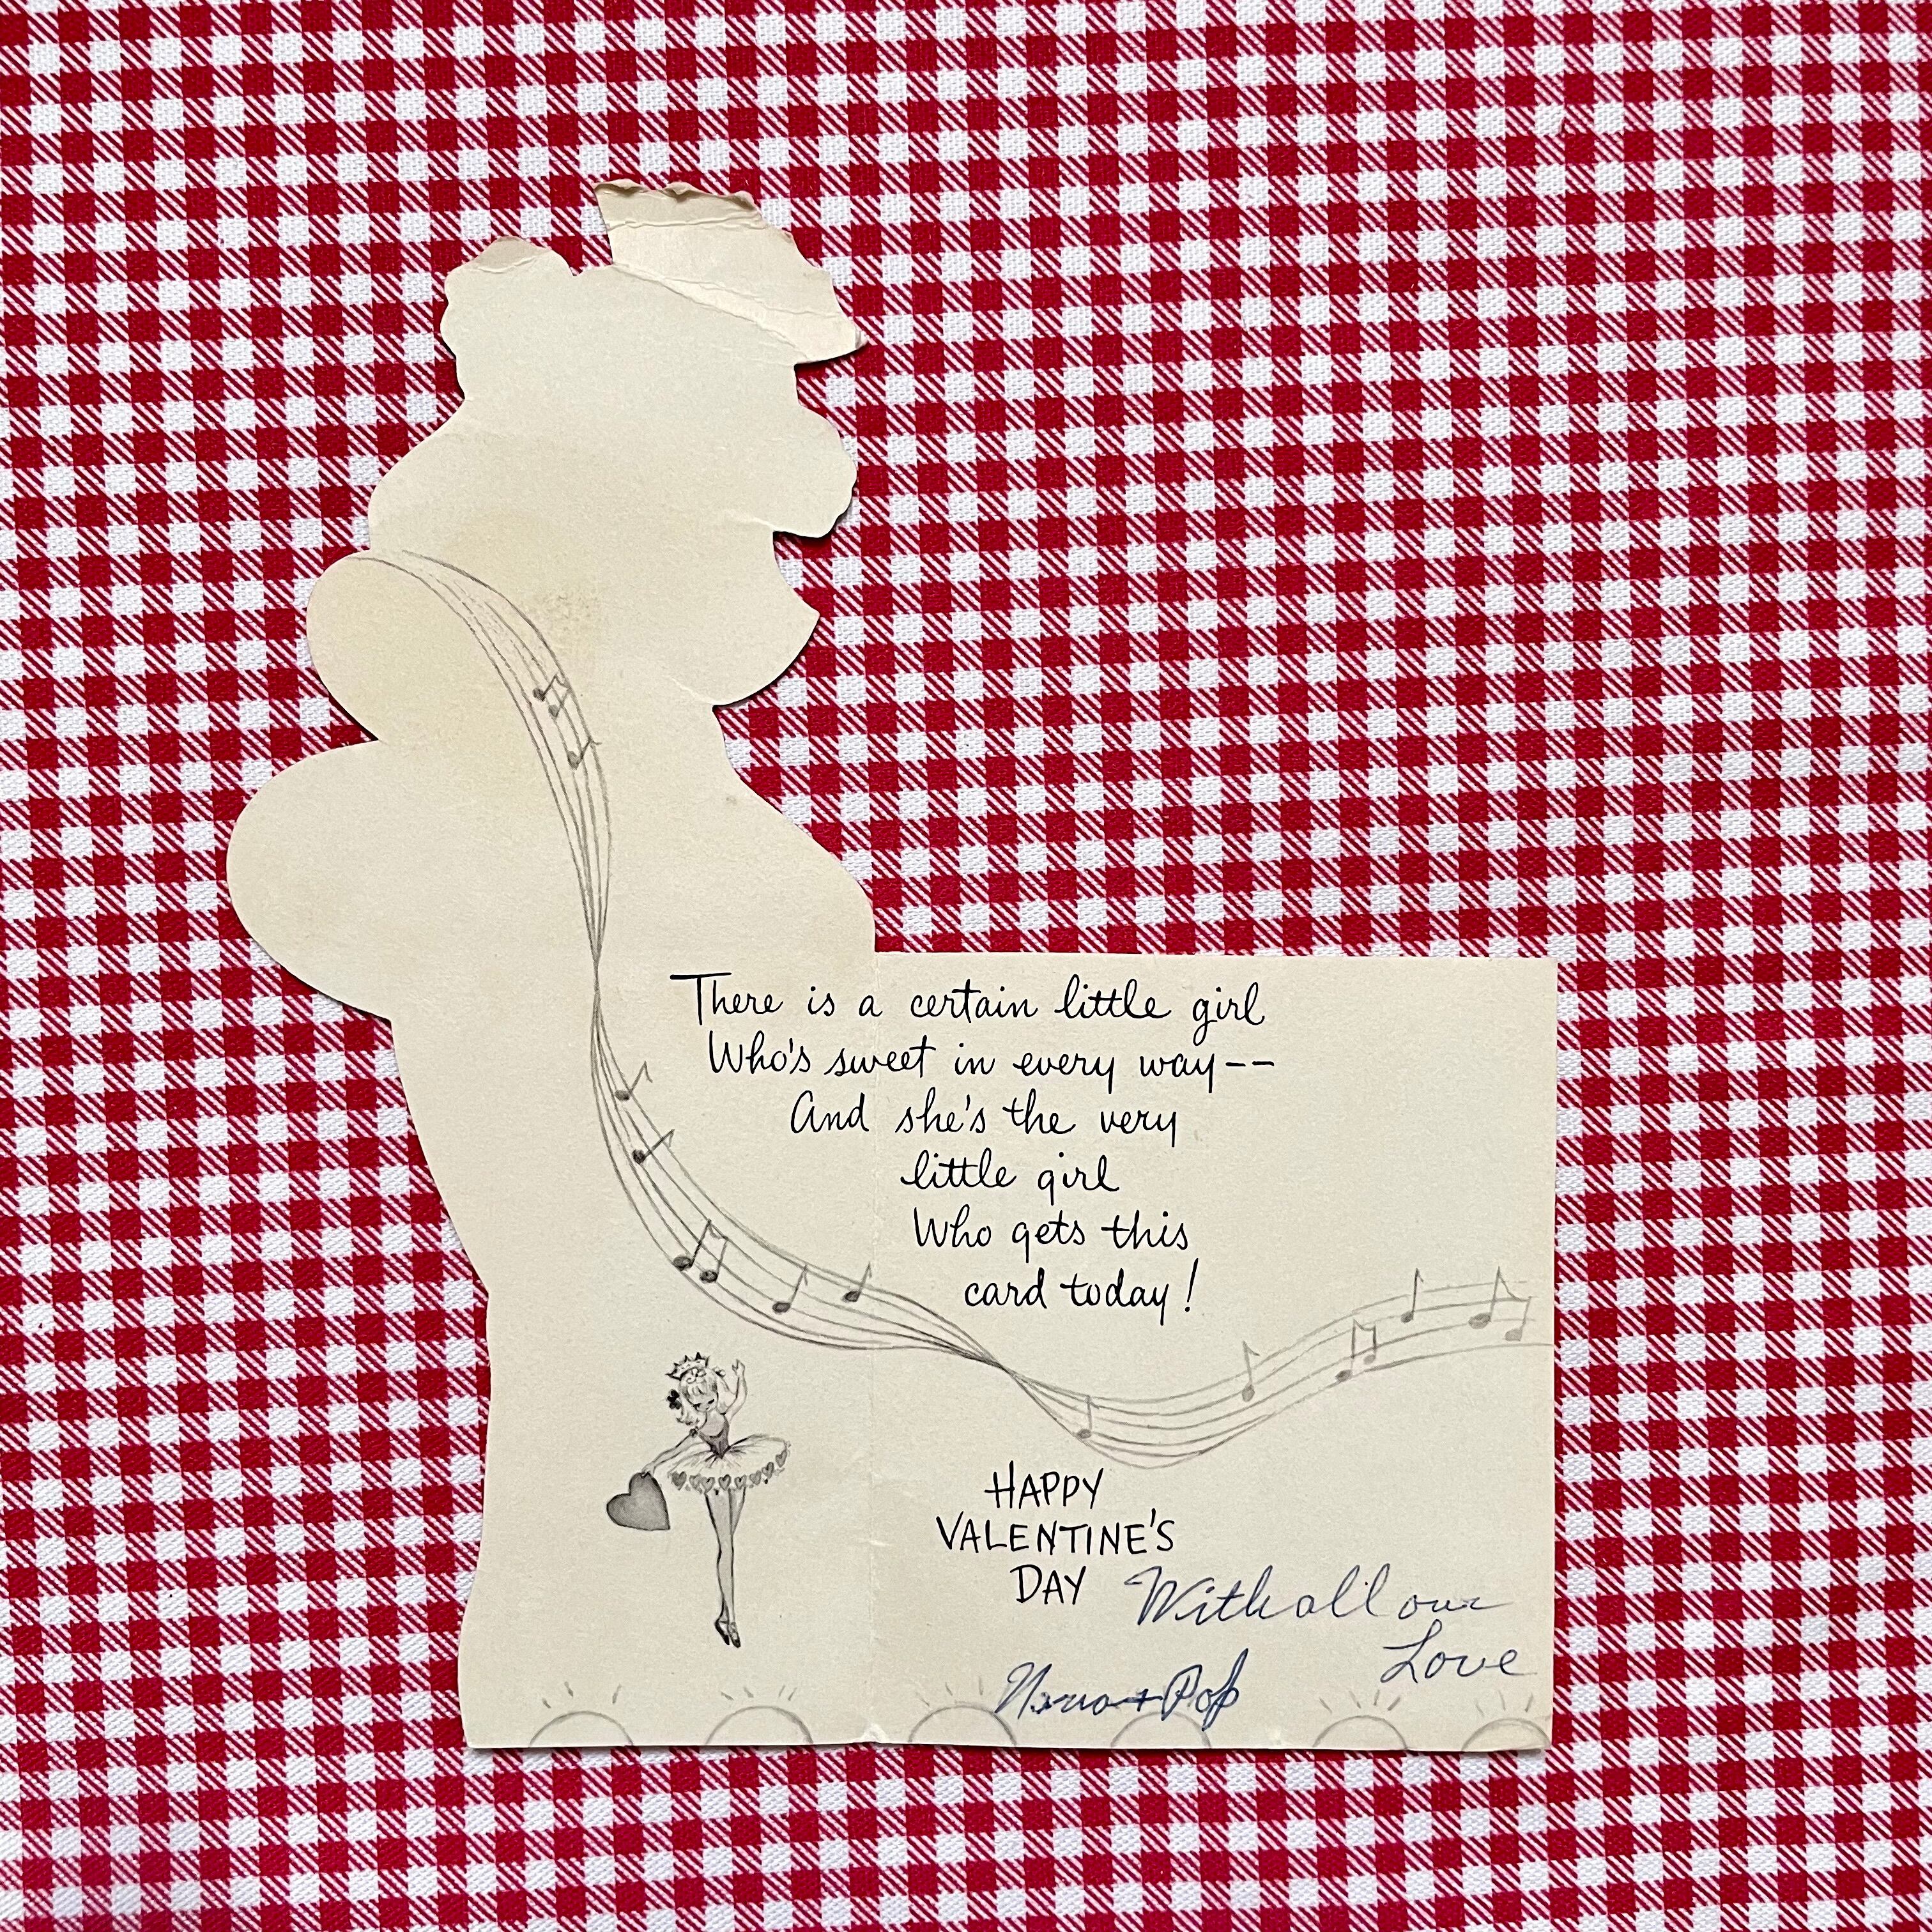 There is a certain little girl
Who's sweet in every way--
And she's the very
little girl
Who gets this
card today!
HAPPY
VALENTINE'S
DAY
With all our
Love
+ Pop